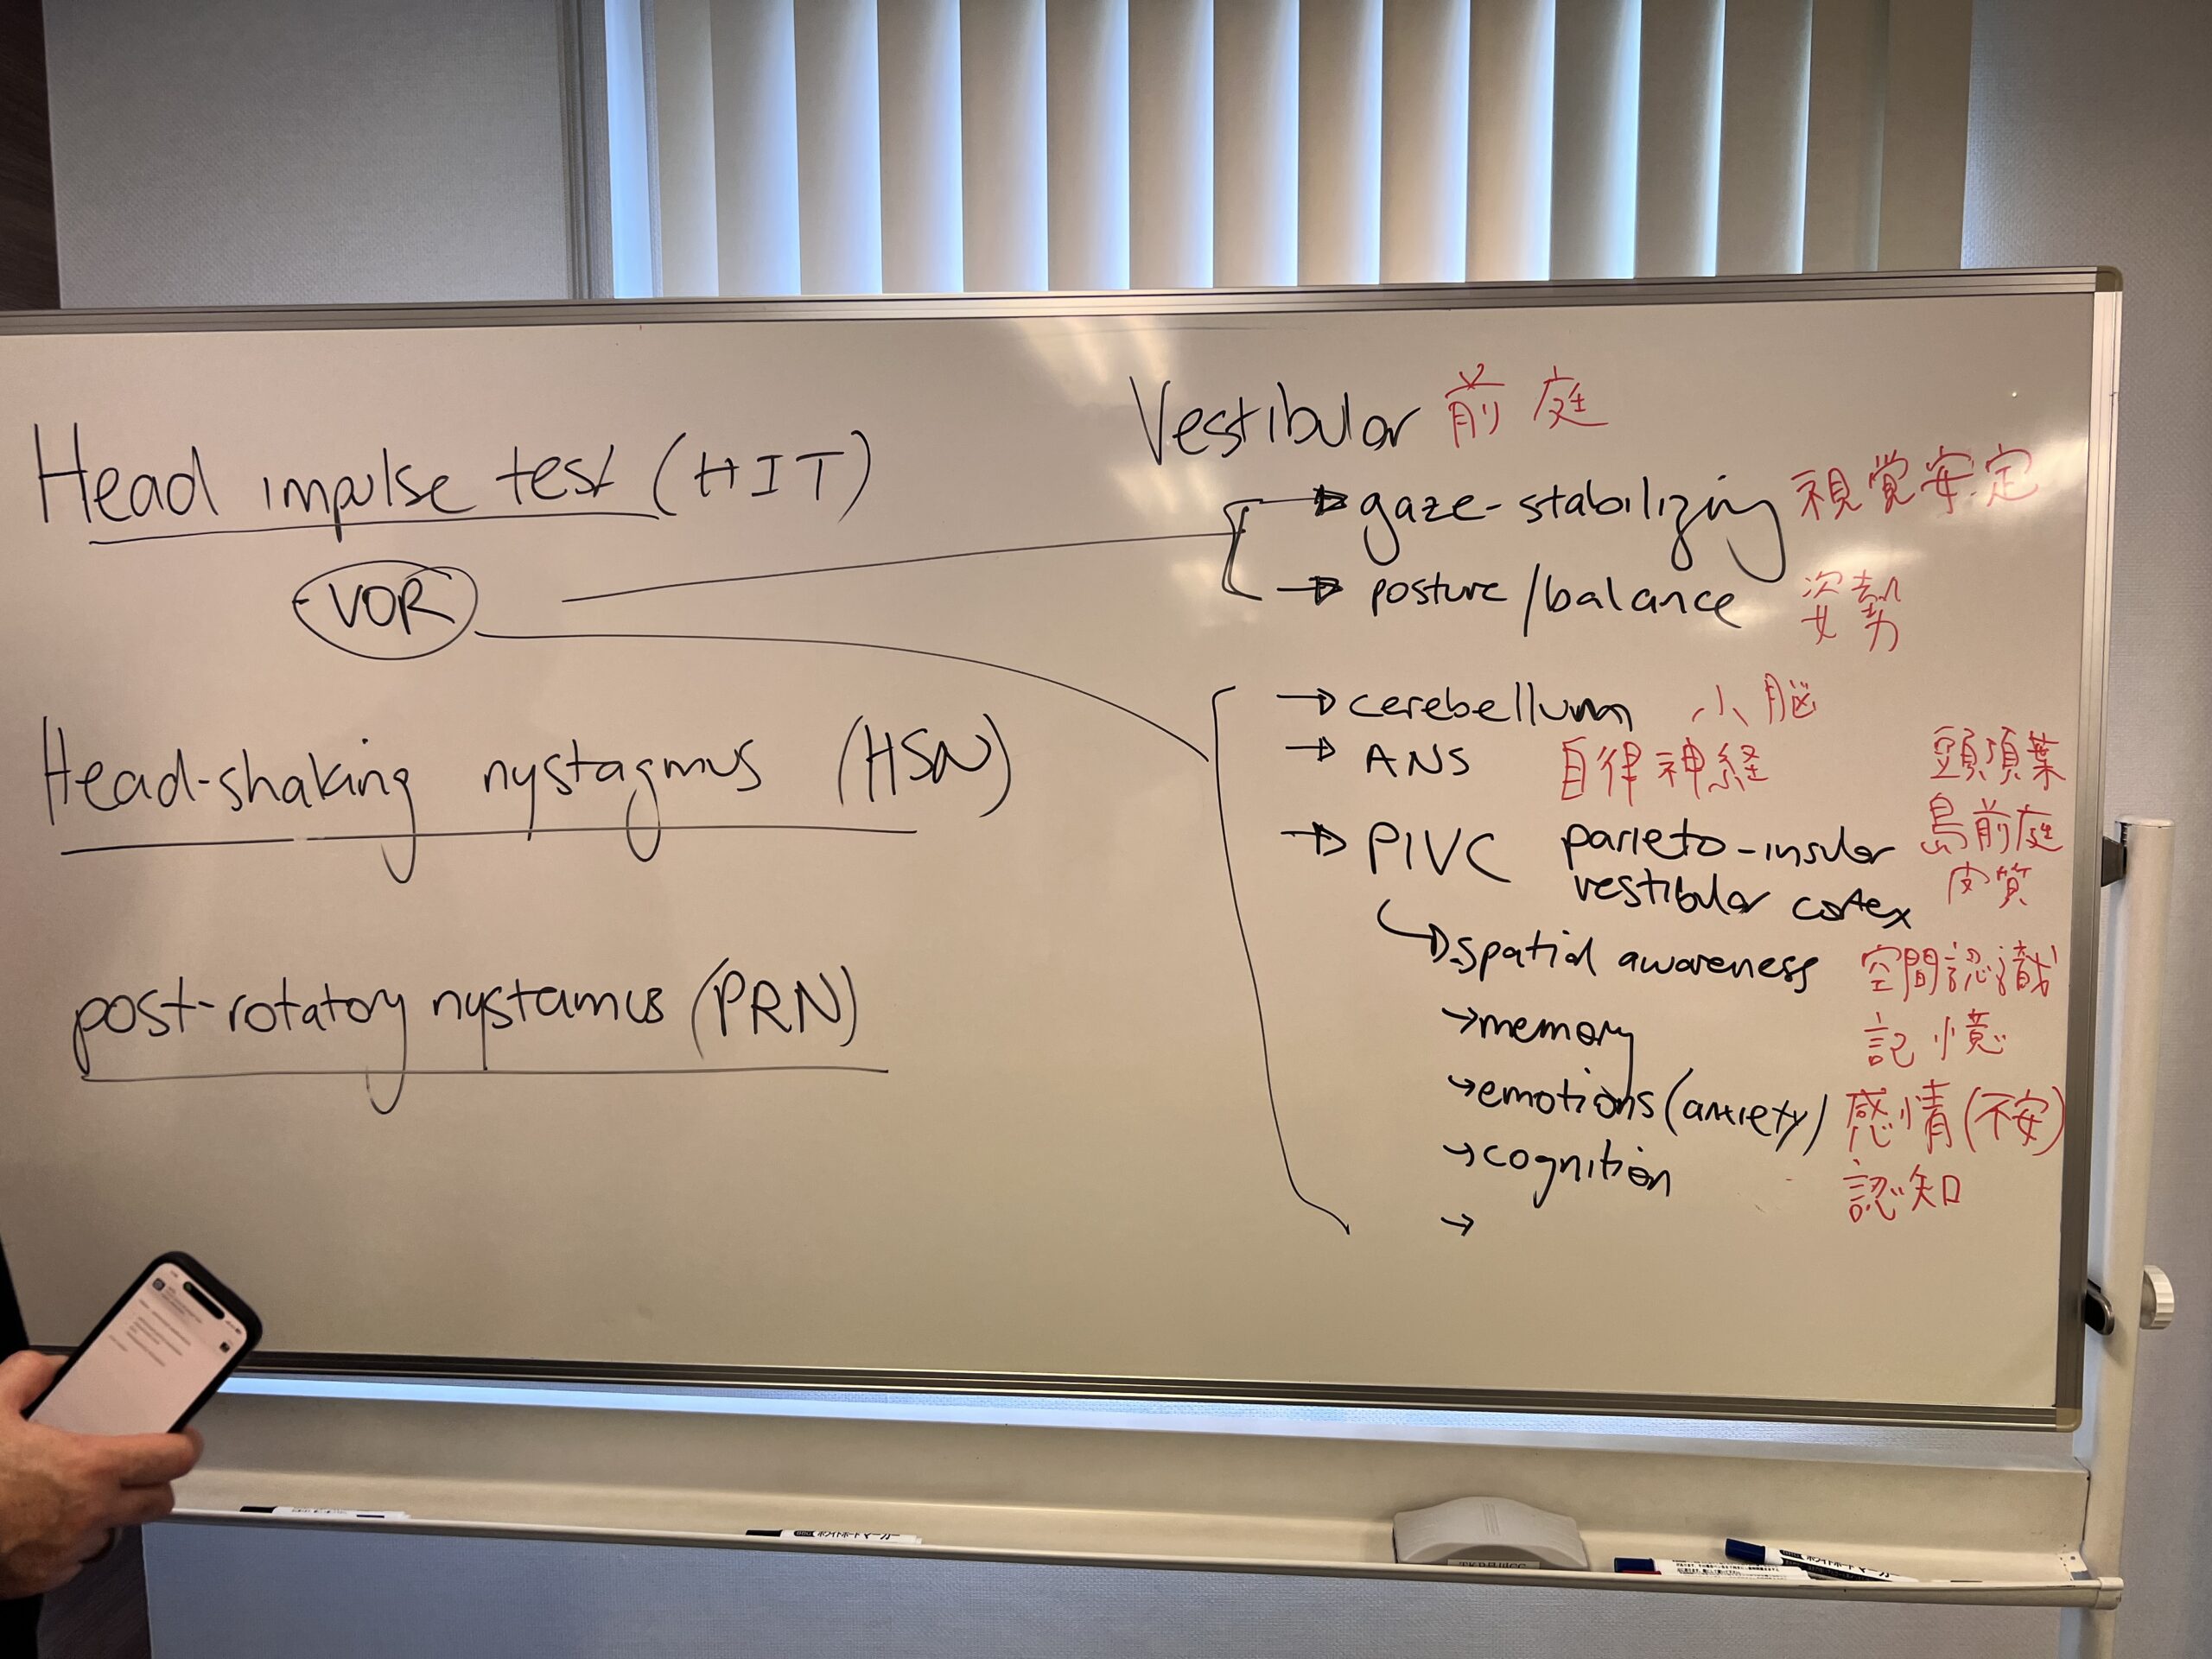 Head impulse test (HIT)
VOR
Head-shaking nystagmus (HSN)
post-rotatory nystamus (PRN)
Vestibular 前庭
→ gaze-stabilizing 視覚安定
→ posture/balance 姿勢
→ cerebellum 小脳
→ ANS 自律神経
→ PIVC parieto-insular vestibular cortex
頭頂葉
島前庭
皮質
→ spatial awareness 空間認識
→ memory 記憶
→ emotions (anxiety) 感情 (不安)
→ cognition 認知
→
ホワイトボードマーカー
ホワイトボードマーカー